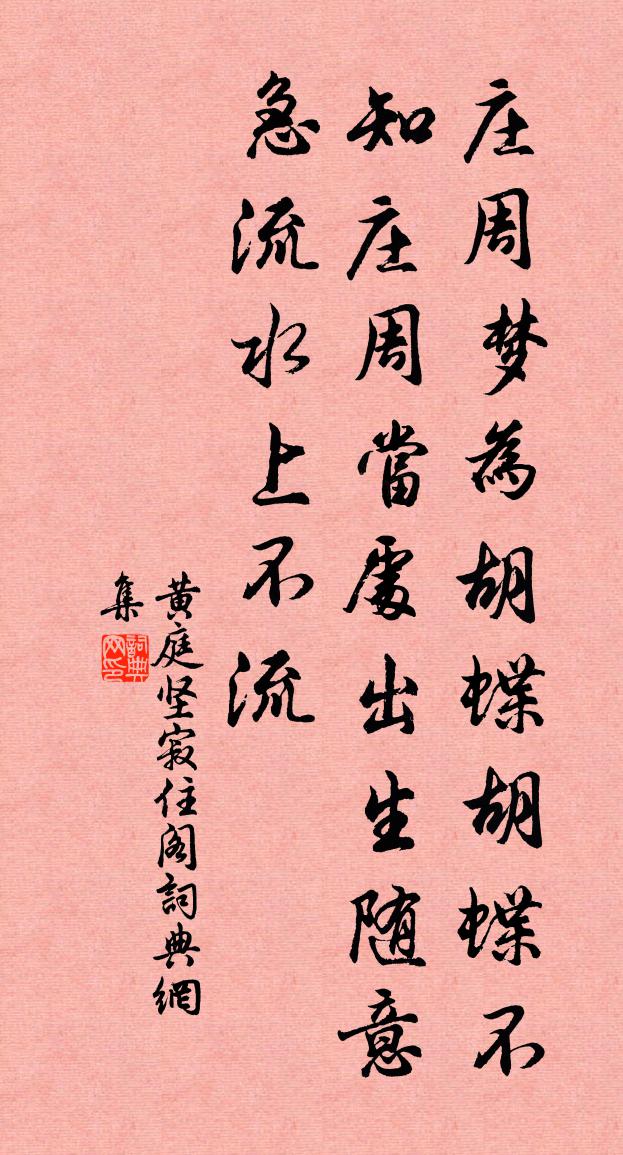 庄周梦為胡蝶胡蝶不
知庄周當處出生随意
急流水上不流
黄庭坚寂住阁詞典網
集
詞典网印